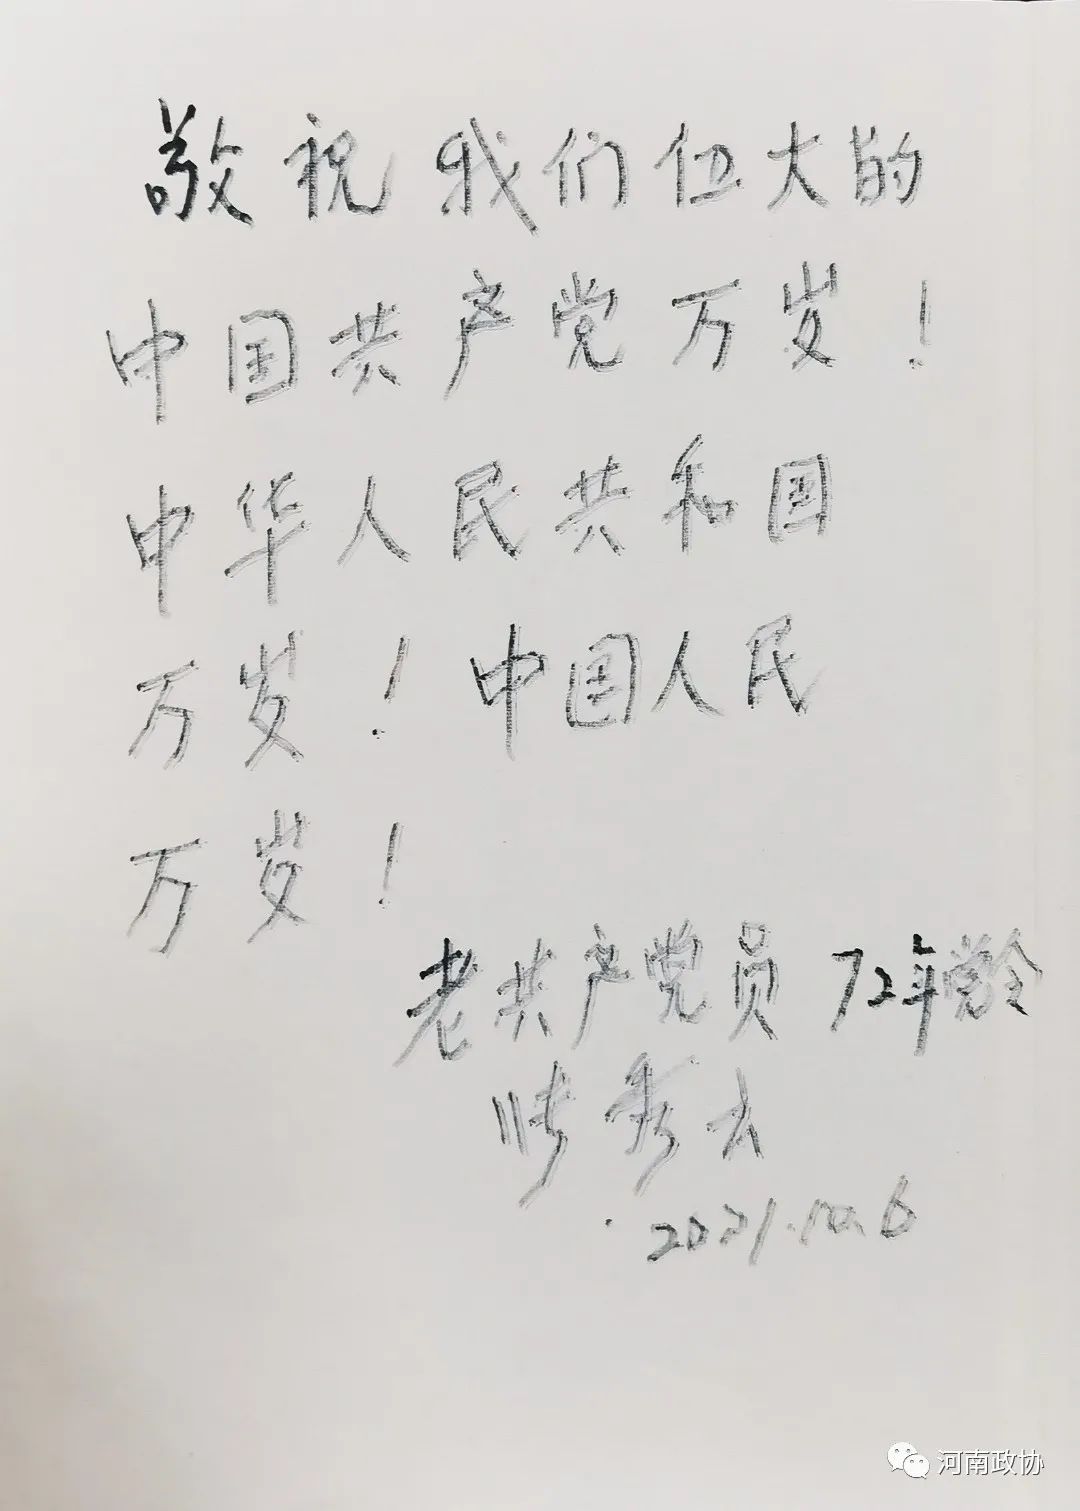 敬祝我们伟大的
中国共产党万岁!
中华人民共和国
万岁!中国人民
万岁!
老共产党员 72年党令
秀
2021.10.6
河南政协